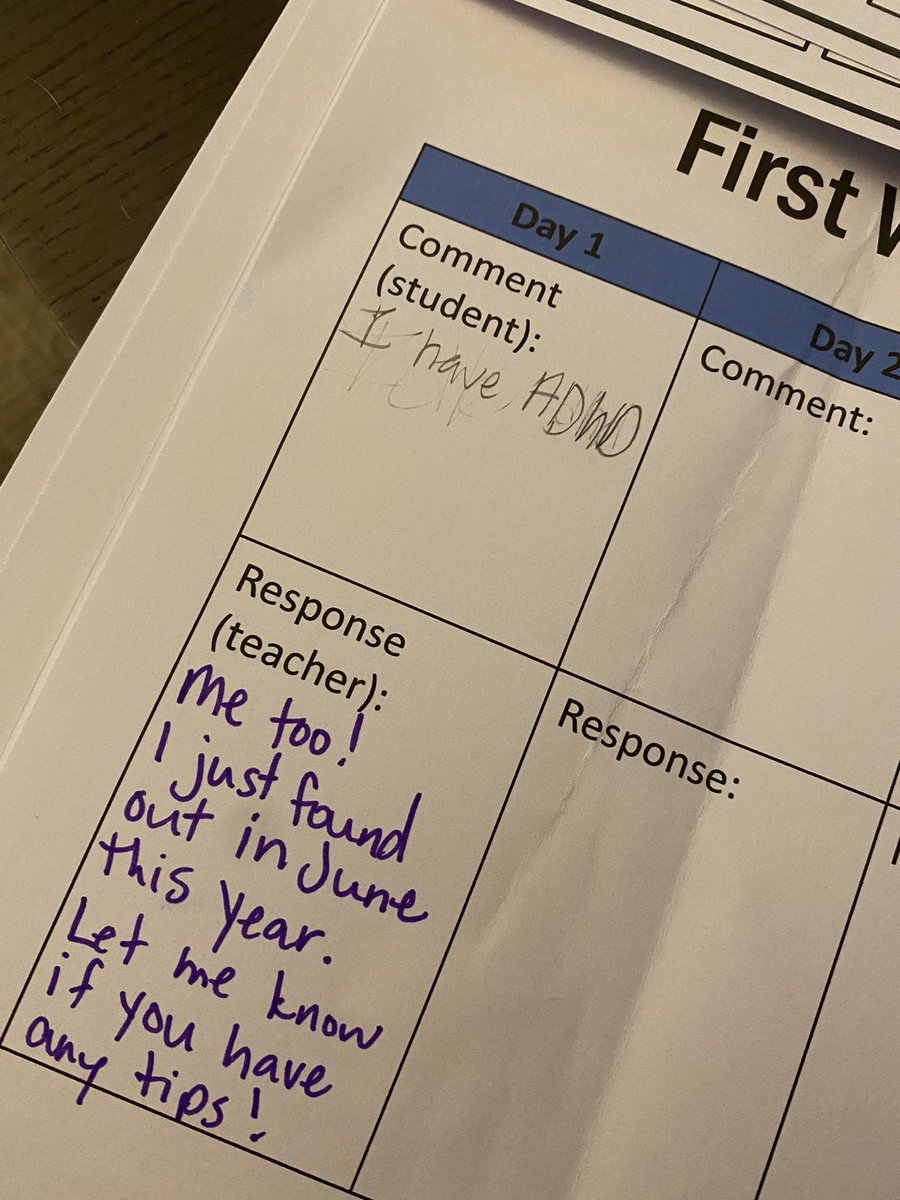 First
Day 1
Day 2
Comment
(student):
I have ADHD
Comment:
Response
(teacher):
Me too!
I just found
out in June
this year.
Let me know
if you have
any tips!
Response: